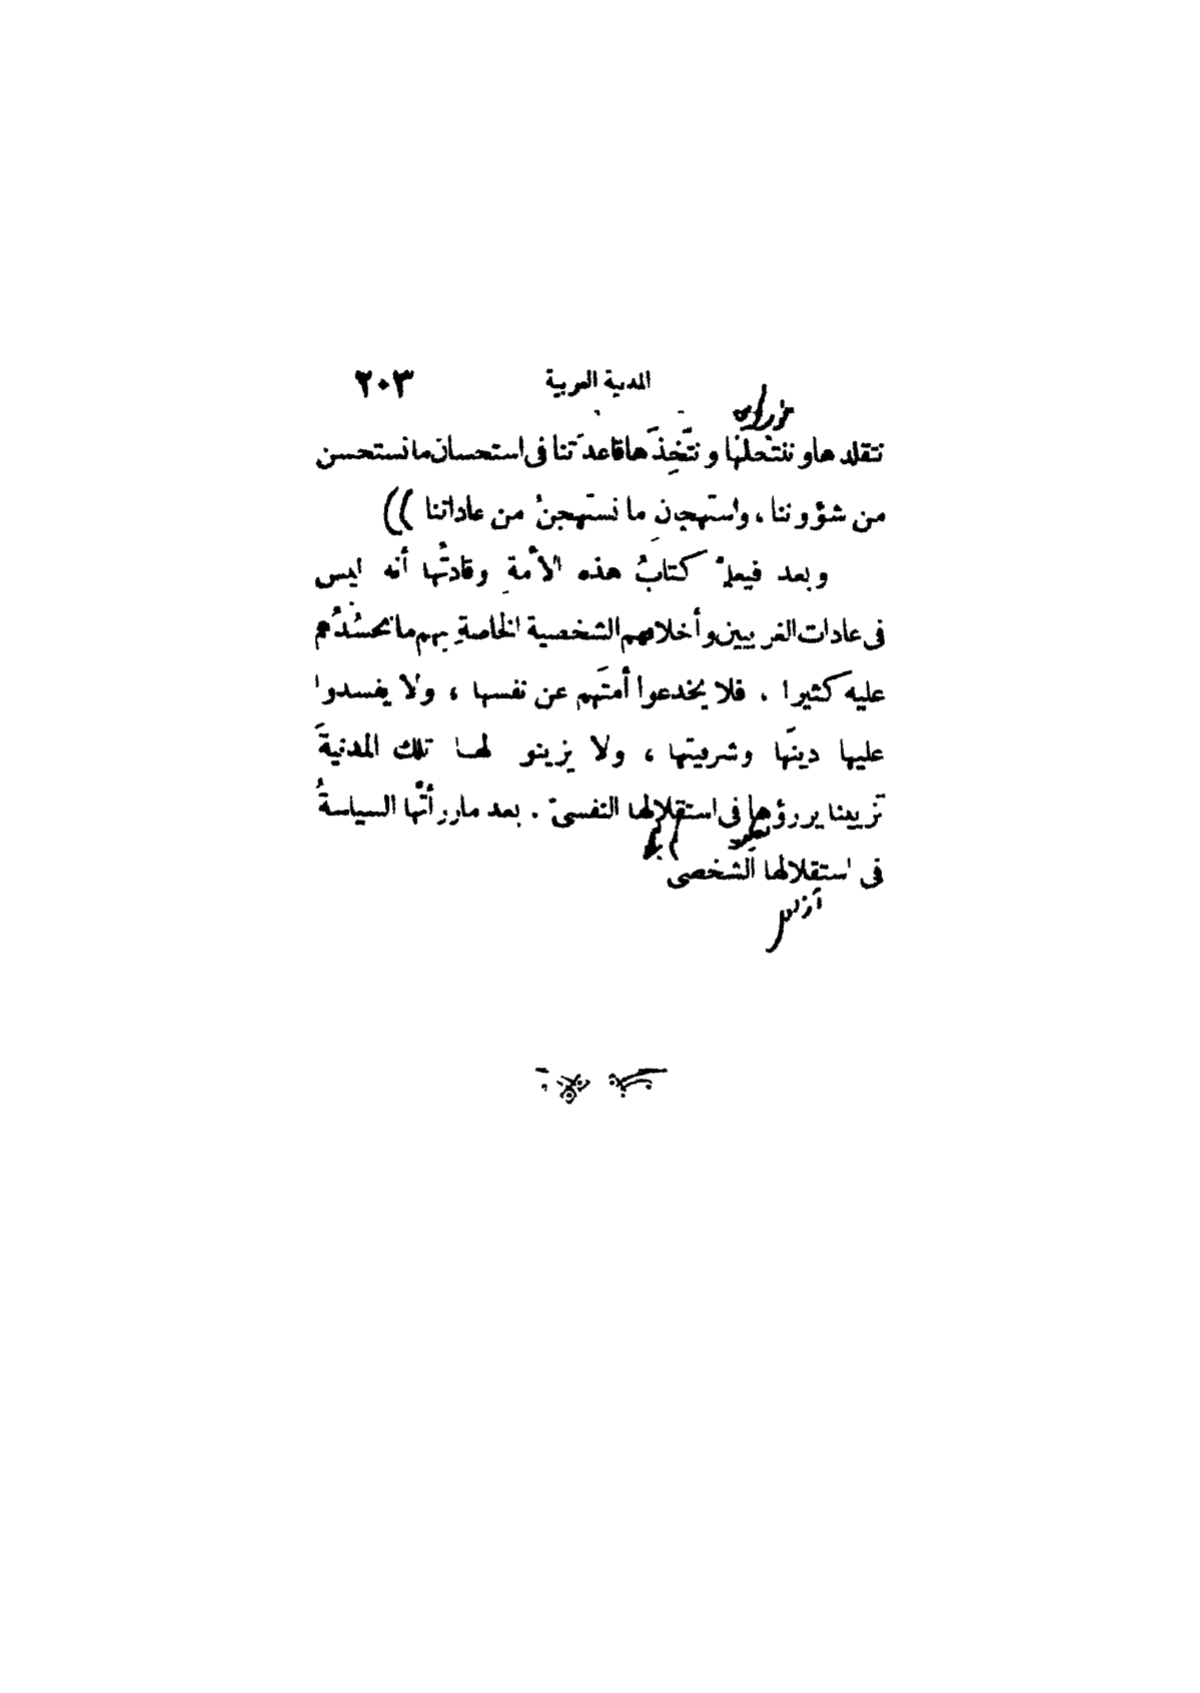 المدنية الغربية ٢٠٣
نتقلدها وننتحلها ونتَّخِذَها قاعدَتنا فى استحسان ما نستحسن
من شؤوننا ، واستهجانِ ما نستهجنُ من عاداتنا ))
وبعد فيعلمْ كتابُ هذه الأمةِ وقادتُها أنه ليس
فى عادات الغربيين وأخلاقهم الشخصية الخاصةِ بهم ما نحسُدُهم
عليه كثيرا . فلا يخدعوا أمتَهم عن نفسها ، ولا يفسدوا
عليها دينَها وشرقيتها ، ولا يزينو لها تلك المدنيةَ
تزيينا يرزؤها فى استقلالها النفسىّ . بعد ما رزأتْها السياسةُ
فى استقلالها الشخصى